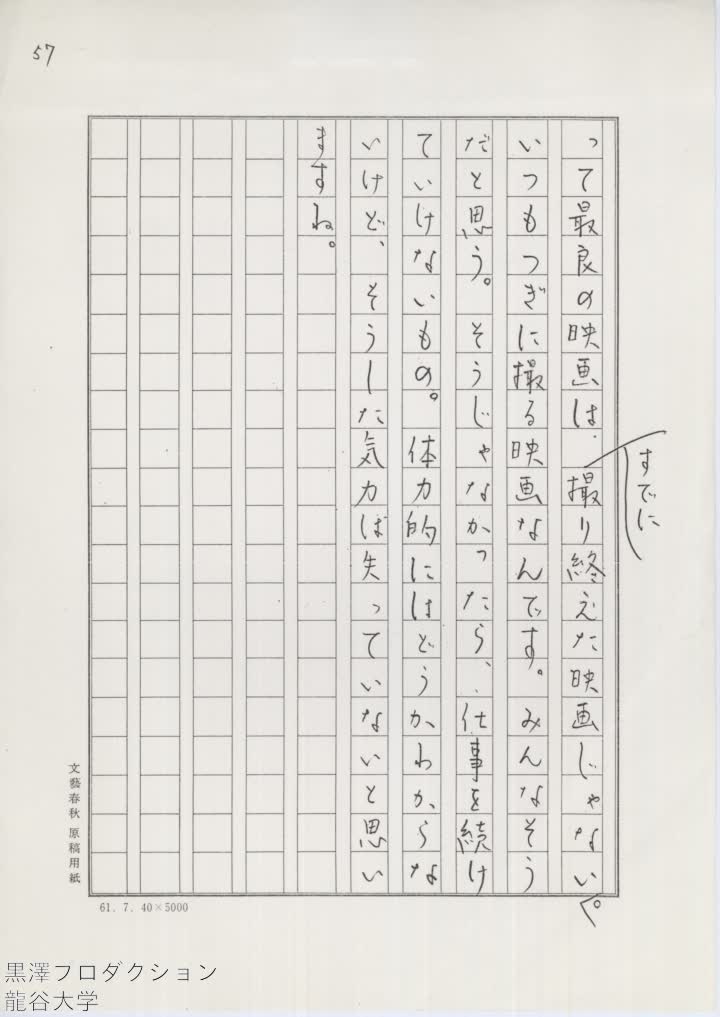 57
すでに
って最良の映画は、撮り終えた映画じゃない。
いつもつぎに撮る映画なんです。みんなそう
だと思う。そうじゃなかったら、仕事を続け
ていけないもの。体力的にはどうかわからな
いけど、そうした気力は失っていないと思い
ますね。
文藝春秋 原稿用紙
61.7.40×5000
黒澤フロダクション
龍谷大学